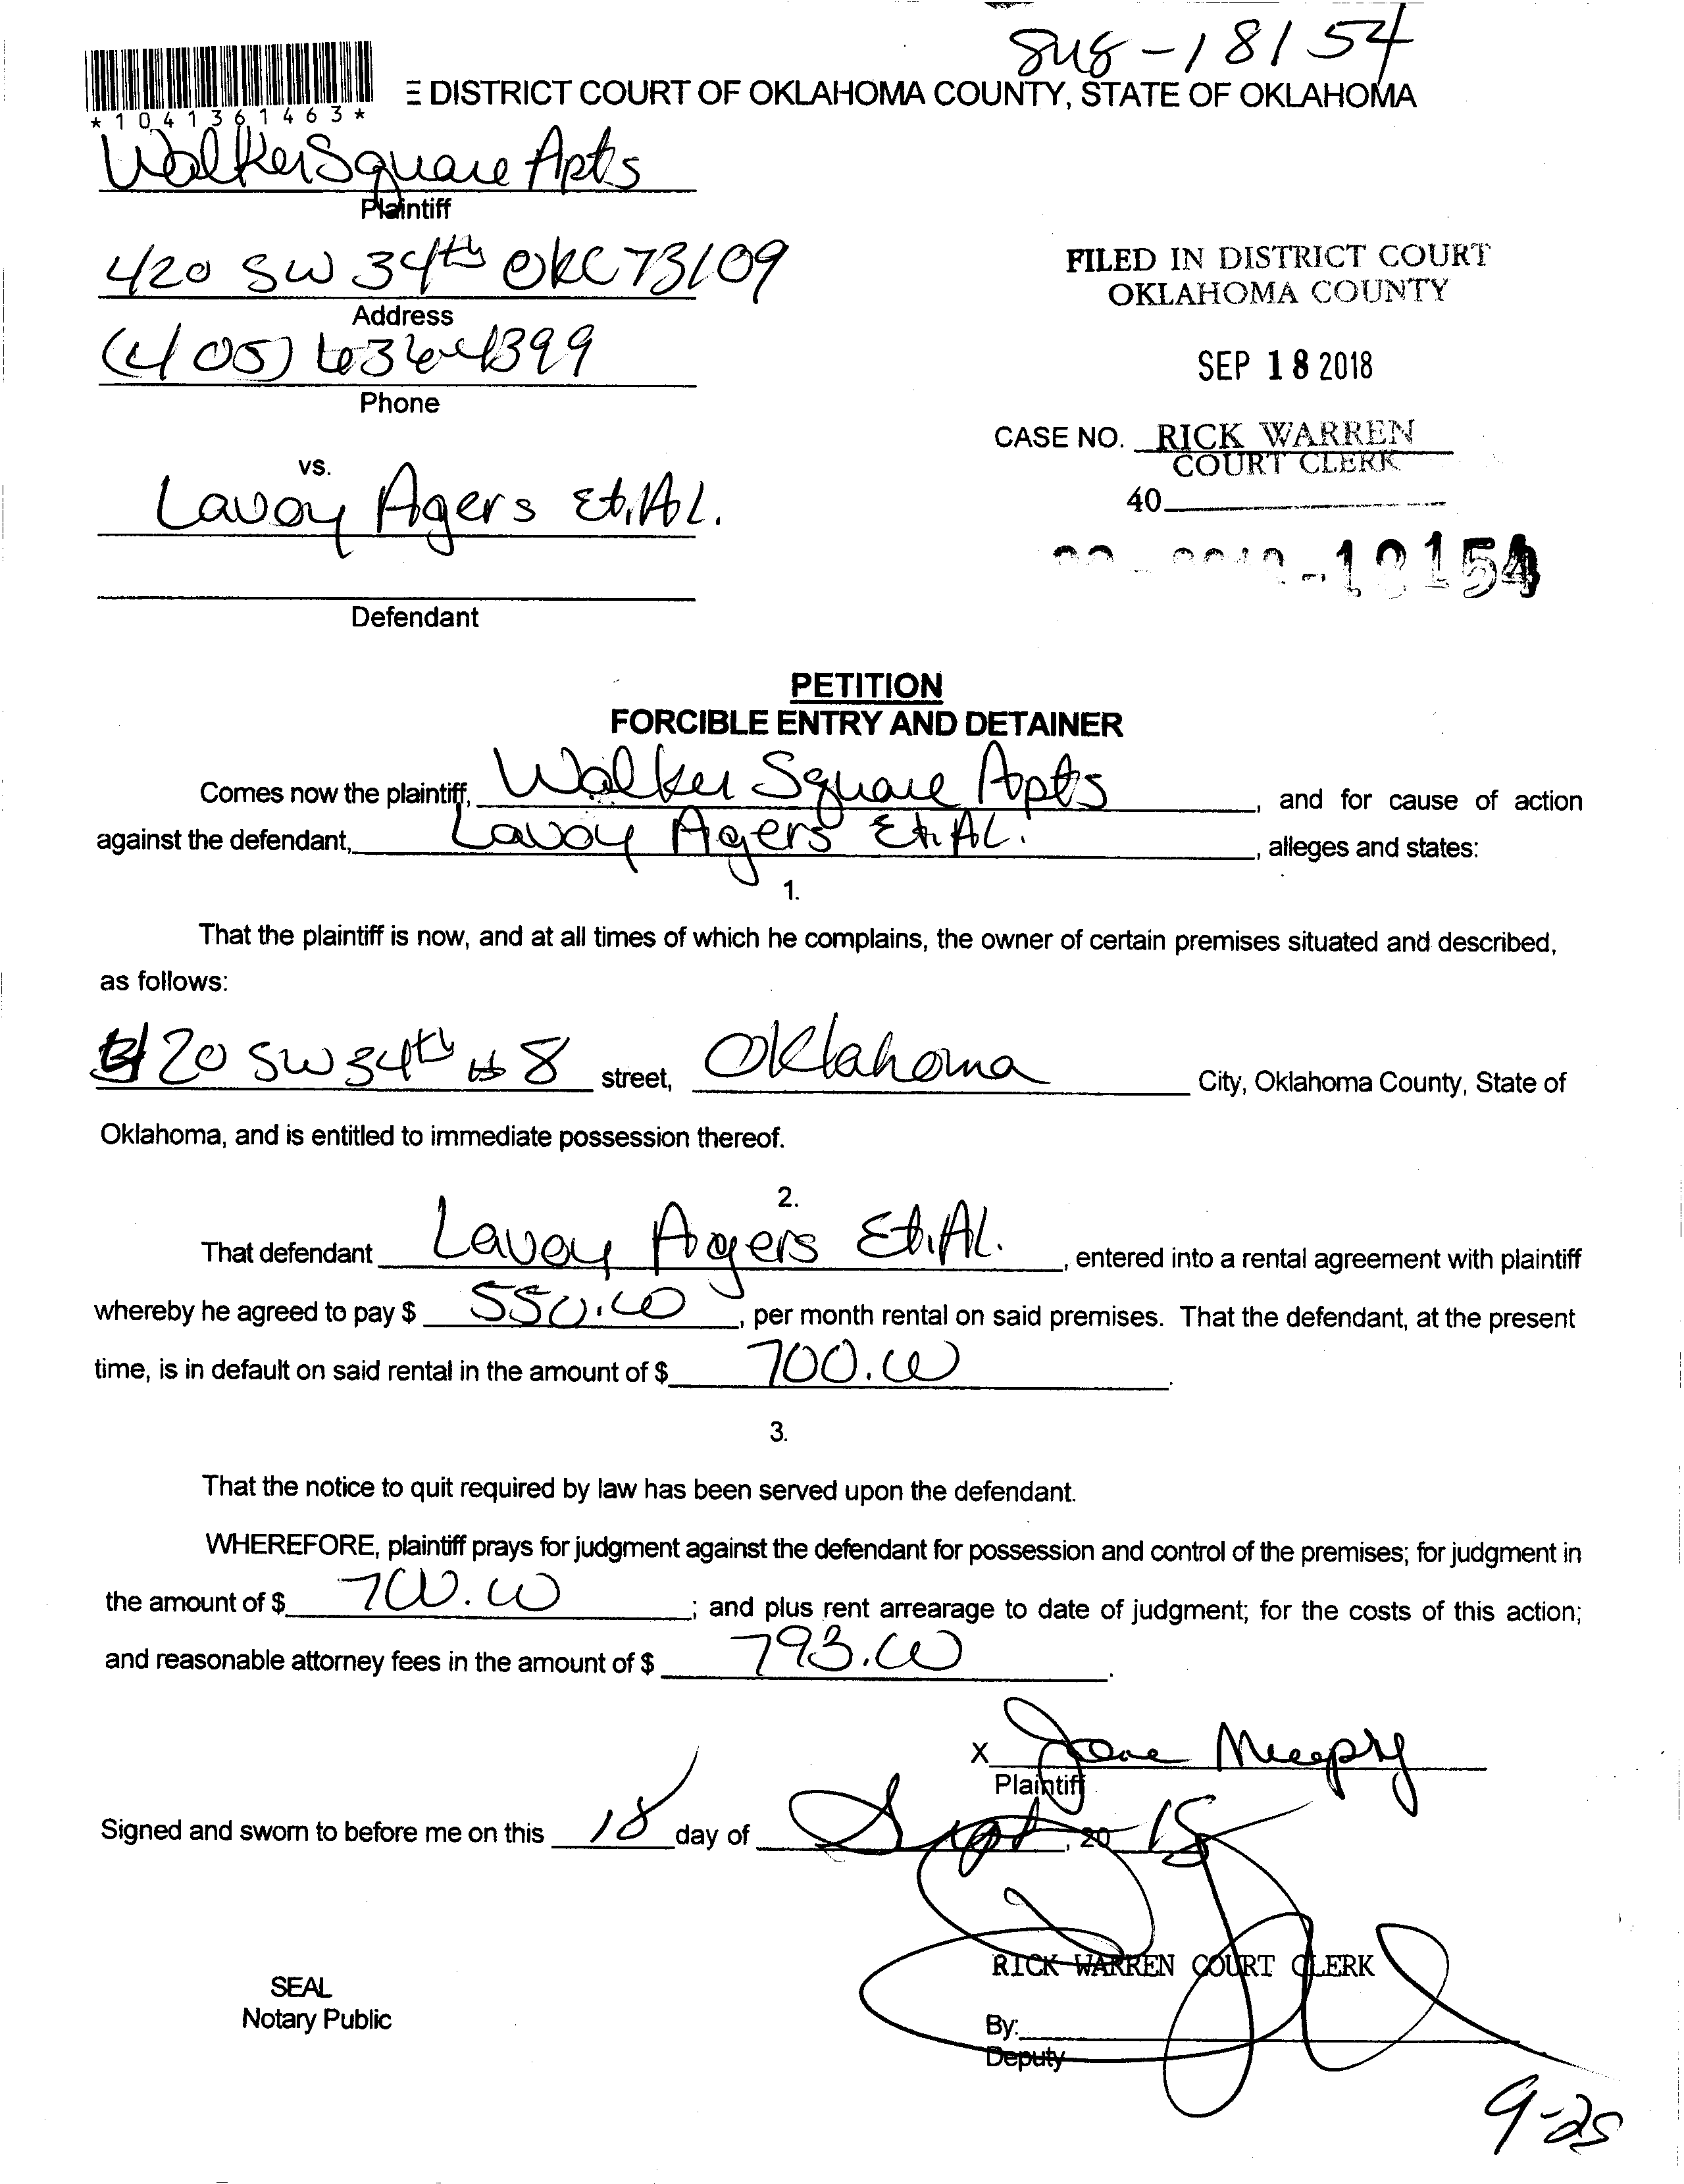 -18154
*1041361463*
E DISTRICT COURT OF OKLAHOMA COUNTY, STATE OF OKLAHOMA
Walker Square Apts
Plaintiff
420 SW 34th OKC 73109
Address
(405) 636-4399
Phone
FILED IN DISTRICT COURT
OKLAHOMA COUNTY
SEP 18 2018
CASE NO. RICK WARREN
COURT CLERK
40
vs.
Lavoy Agers Et.Al.
Defendant
PETITION
FORCIBLE ENTRY AND DETAINER
Comes now the plaintiff, Walker Square Apts, and for cause of action
against the defendant, Lavoy Agers Et.Al., alleges and states:
1.
That the plaintiff is now, and at all times of which he complains, the owner of certain premises situated and described,
as follows:
420 SW 34th #8 street, Oklahoma City, Oklahoma County, State of
Oklahoma, and is entitled to immediate possession thereof.
2.
That defendant Lavoy Agers Et.Al., entered into a rental agreement with plaintiff
whereby he agreed to pay $ 550.00, per month rental on said premises. That the defendant, at the present
time, is in default on said rental in the amount of $ 700.00.
3.
That the notice to quit required by law has been served upon the defendant.
WHEREFORE, plaintiff prays for judgment against the defendant for possession and control of the premises; for judgment in
the amount of $ 700.00; and plus rent arrearage to date of judgment; for the costs of this action;
and reasonable attorney fees in the amount of $ 793.00.
X
Plaintiff
Signed and sworn to before me on this 18 day of Sept, 20 18
RICK WARREN COURT CLERK
SEAL
Notary Public
By:
Deputy
9-25